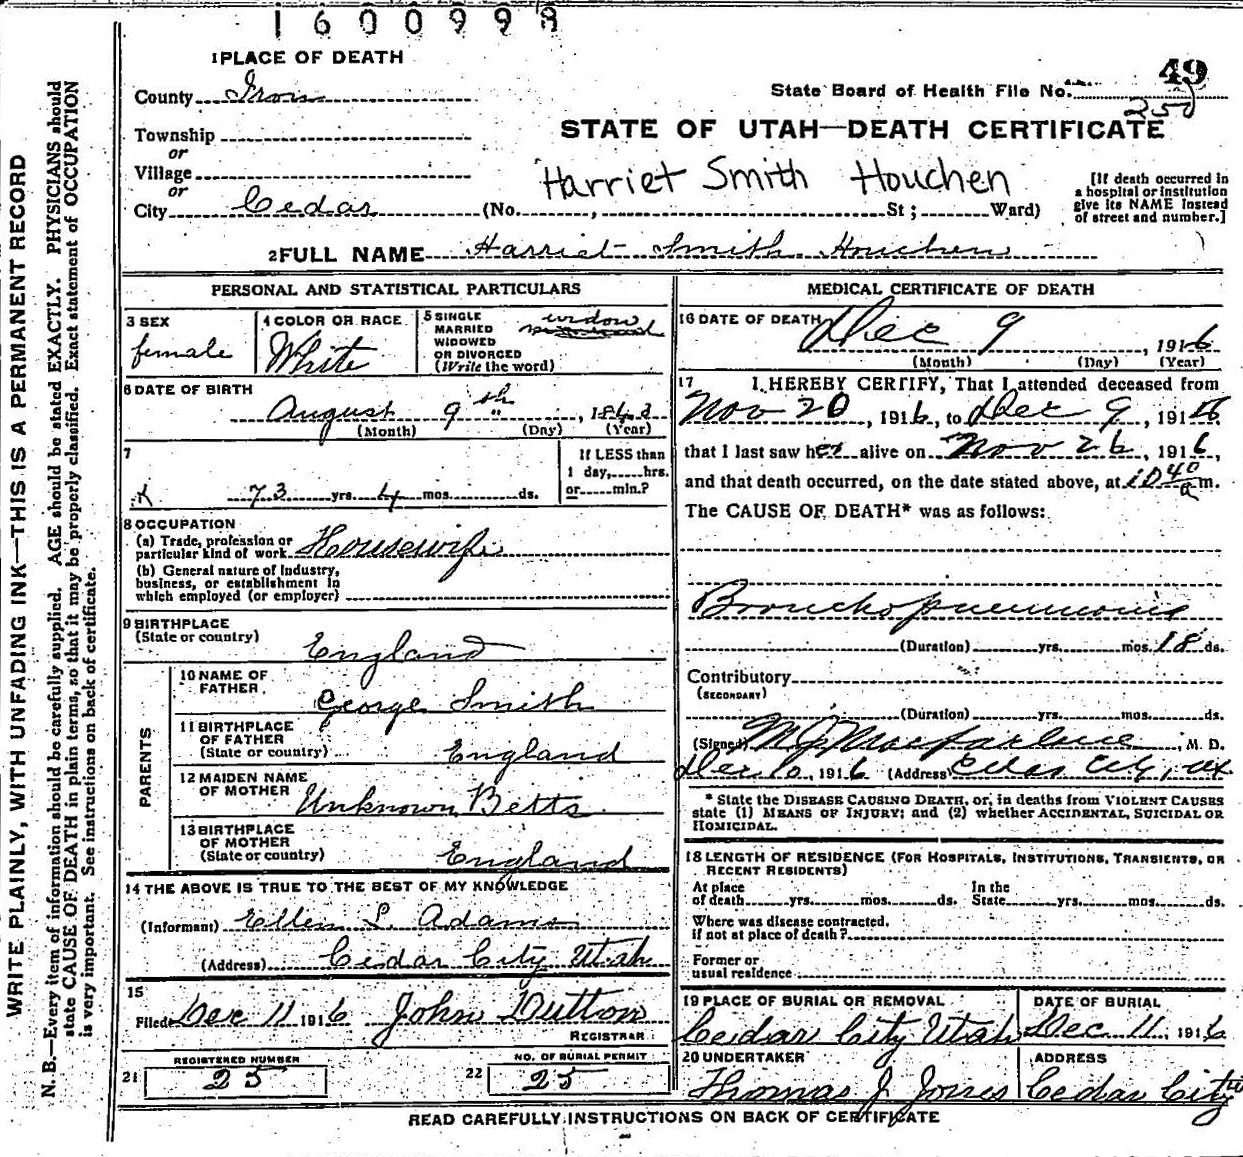 1600998
1 PLACE OF DEATH
49
County Iron
State Board of Health File No. 250
Township
or
STATE OF UTAH—DEATH CERTIFICATE
Village
or
Harriet Smith Houchen
City Cedar (No. , St ; Ward)
[If death occurred in
a hospital or institution
give its NAME instead
of street and number.]
2 FULL NAME Harriet Smith Houchen
PERSONAL AND STATISTICAL PARTICULARS
3 SEX
female
4 COLOR OR RACE
White
5 SINGLE
MARRIED
WIDOWED
OR DIVORCED
(Write the word)
widow
6 DATE OF BIRTH
August 9th , 1843
(Month) (Day) (Year)
7
73 yrs. 4 mos. ds.
If LESS than
1 day, hrs.
or min.?
8 OCCUPATION
(a) Trade, profession or
particular kind of work Housewife
(b) General nature of Industry,
business, or establishment in
which employed (or employer)
9 BIRTHPLACE
(State or country)
England
PARENTS
10 NAME OF
FATHER
George Smith
11 BIRTHPLACE
OF FATHER
(State or country)
England
12 MAIDEN NAME
OF MOTHER
Unknown Betts
13 BIRTHPLACE
OF MOTHER
(State or country)
England
14 THE ABOVE IS TRUE TO THE BEST OF MY KNOWLEDGE
(Informant) Ellen L. Adams
(Address) Cedar City Utah
15
Filed Dec 11 1916 John Dutton
REGISTRAR
REGISTERED NUMBER
21 25
NO. OF BURIAL PERMIT
22 25
MEDICAL CERTIFICATE OF DEATH
16 DATE OF DEATH
Dec 9 , 1916
(Month) (Day) (Year)
17 I HEREBY CERTIFY, That I attended deceased from
Nov 20 , 1916, to Dec 9 , 1916
that I last saw her alive on Nov 26 , 1916,
and that death occurred, on the date stated above, at 10 40 a m.
The CAUSE OF DEATH* was as follows:
Bronchopneumonia
(Duration) yrs. mos. 18 ds.
Contributory
(SECONDARY)
(Duration) yrs. mos. ds.
(Signed) M J Macfarlane , M. D.
Dec 10, 1916 (Address) Cedar City, Ut
* State the DISEASE CAUSING DEATH, or, in deaths from VIOLENT CAUSES
state (1) MEANS OF INJURY; and (2) whether ACCIDENTAL, SUICIDAL OR
HOMICIDAL.
18 LENGTH OF RESIDENCE (FOR HOSPITALS, INSTITUTIONS, TRANSIENTS, OR
RECENT RESIDENTS)
At place
of death yrs. mos. ds.
In the
State yrs. mos. ds.
Where was disease contracted,
if not at place of death?
Former or
usual residence
19 PLACE OF BURIAL OR REMOVAL
Cedar City Utah
DATE OF BURIAL
Dec 11, 1916
20 UNDERTAKER
Thomas J. Jones
ADDRESS
Cedar City
READ CAREFULLY INSTRUCTIONS ON BACK OF CERTIFICATE
WRITE PLAINLY, WITH UNFADING INK—THIS IS A PERMANENT RECORD
N. B.—Every item of information should be carefully supplied. AGE should be stated EXACTLY. PHYSICIANS should
state CAUSE OF DEATH in plain terms, so that it may be properly classified. Exact statement of OCCUPATION
is very important. See instructions on back of certificate.